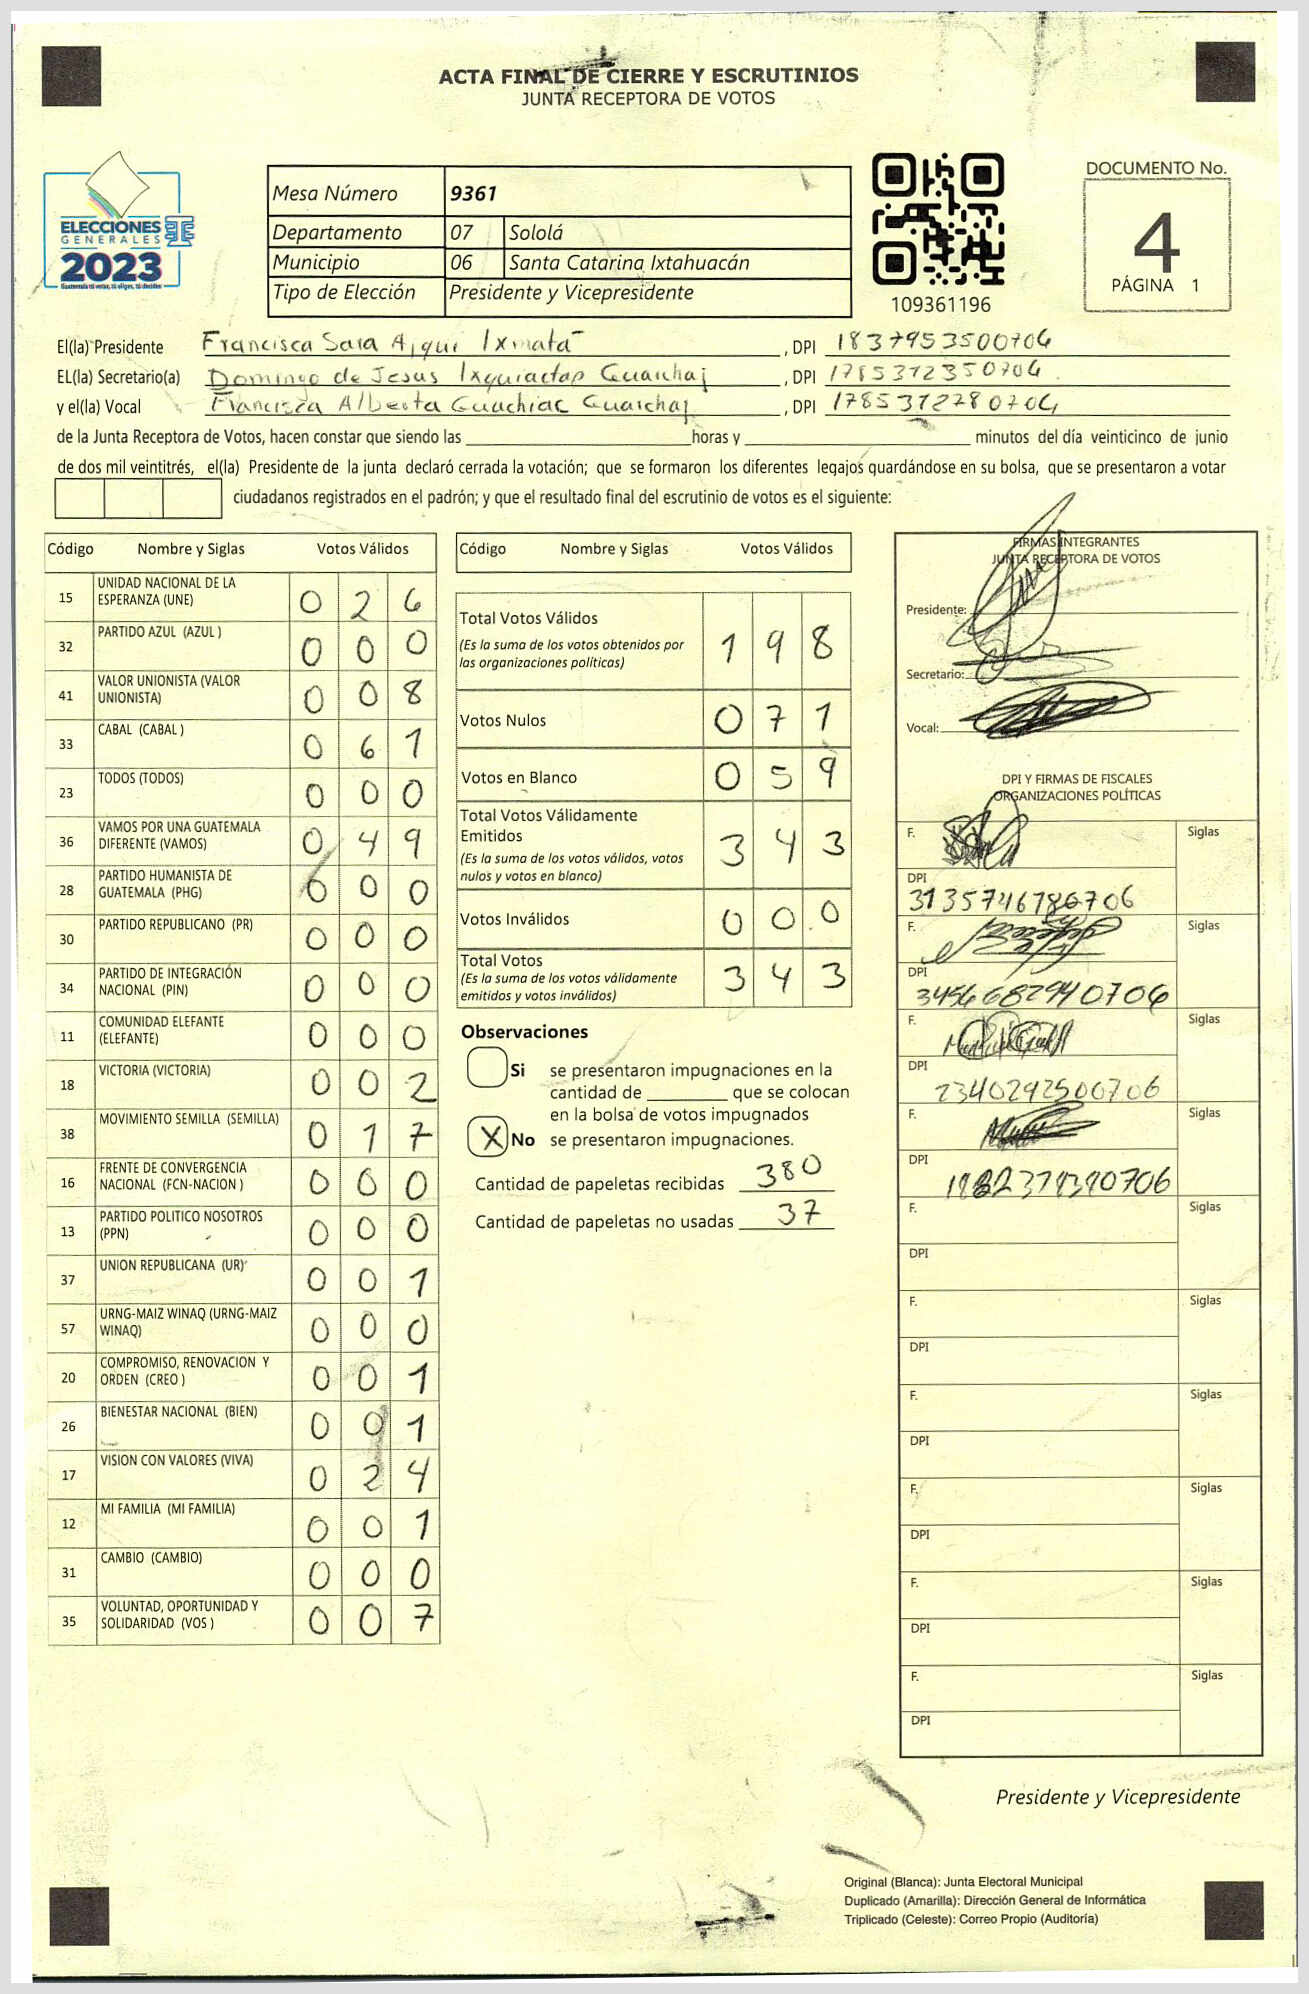 ACTA FINAL DE CIERRE Y ESCRUTINIOS
JUNTA RECEPTORA DE VOTOS
ELECCIONES
GENERALES
2023
Guatemala tú votas, tú eliges, tú decides
Mesa Número 9361
Departamento 07 Sololá
Municipio 06 Santa Catarina Ixtahuacán
Tipo de Elección Presidente y Vicepresidente
109361196
DOCUMENTO No.
4
PÁGINA 1
El(la) Presidente Francisca Sara Ajqui Ixmatá , DPI 1837953500704
EL(la) Secretario(a) Domingo de Jesus Ixquiactap Guachaj , DPI 1785312350704
y el(la) Vocal Francisca Alberta Guachiac Guarchaj , DPI 1785312780704
de la Junta Receptora de Votos, hacen constar que siendo las horas y minutos del día veinticinco de junio
de dos mil veintitrés, el(la) Presidente de la junta declaró cerrada la votación; que se formaron los diferentes legajos guardándose en su bolsa, que se presentaron a votar
ciudadanos registrados en el padrón; y que el resultado final del escrutinio de votos es el siguiente:
Código Nombre y Siglas Votos Válidos
15 UNIDAD NACIONAL DE LA
ESPERANZA (UNE) 0 2 6
32 PARTIDO AZUL (AZUL ) 0 0 0
41 VALOR UNIONISTA (VALOR
UNIONISTA) 0 0 8
33 CABAL (CABAL ) 0 6 1
23 TODOS (TODOS) 0 0 0
36 VAMOS POR UNA GUATEMALA
DIFERENTE (VAMOS) 0 4 9
28 PARTIDO HUMANISTA DE
GUATEMALA (PHG) 0 0 0
30 PARTIDO REPUBLICANO (PR) 0 0 0
34 PARTIDO DE INTEGRACIÓN
NACIONAL (PIN) 0 0 0
11 COMUNIDAD ELEFANTE
(ELEFANTE) 0 0 0
18 VICTORIA (VICTORIA) 0 0 2
38 MOVIMIENTO SEMILLA (SEMILLA) 0 1 7
16 FRENTE DE CONVERGENCIA
NACIONAL (FCN-NACION ) 0 0 0
13 PARTIDO POLITICO NOSOTROS
(PPN) 0 0 0
37 UNION REPUBLICANA (UR) 0 0 1
57 URNG-MAIZ WINAQ (URNG-MAIZ
WINAQ) 0 0 0
20 COMPROMISO, RENOVACION Y
ORDEN (CREO ) 0 0 1
26 BIENESTAR NACIONAL (BIEN) 0 0 1
17 VISION CON VALORES (VIVA) 0 2 4
12 MI FAMILIA (MI FAMILIA) 0 0 1
31 CAMBIO (CAMBIO) 0 0 0
35 VOLUNTAD, OPORTUNIDAD Y
SOLIDARIDAD (VOS ) 0 0 7
Código Nombre y Siglas Votos Válidos
Total Votos Válidos
(Es la suma de los votos obtenidos por
las organizaciones políticas) 1 9 8
Votos Nulos 0 7 1
Votos en Blanco 0 5 9
Total Votos Válidamente
Emitidos
(Es la suma de los votos válidos, votos
nulos y votos en blanco) 3 4 3
Votos Inválidos 0 0 0
Total Votos
(Es la suma de los votos válidamente
emitidos y votos inválidos) 3 4 3
Observaciones
Si se presentaron impugnaciones en la
cantidad de que se colocan
en la bolsa de votos impugnados
X No se presentaron impugnaciones.
Cantidad de papeletas recibidas 380
Cantidad de papeletas no usadas 37
FIRMAS INTEGRANTES
JUNTA RECEPTORA DE VOTOS
Presidente:
Secretario:
Vocal:
DPI Y FIRMAS DE FISCALES
ORGANIZACIONES POLÍTICAS
F. Siglas
DPI
F. Siglas
DPI
F. Siglas
DPI
2340292500706
F. Siglas
DPI
F. Siglas
DPI
F. Siglas
DPI
F. Siglas
DPI
F. Siglas
DPI
F. Siglas
DPI
F. Siglas
DPI
Presidente y Vicepresidente
Original (Blanca): Junta Electoral Municipal
Duplicado (Amarilla): Dirección General de Informática
Triplicado (Celeste): Correo Propio (Auditoría)